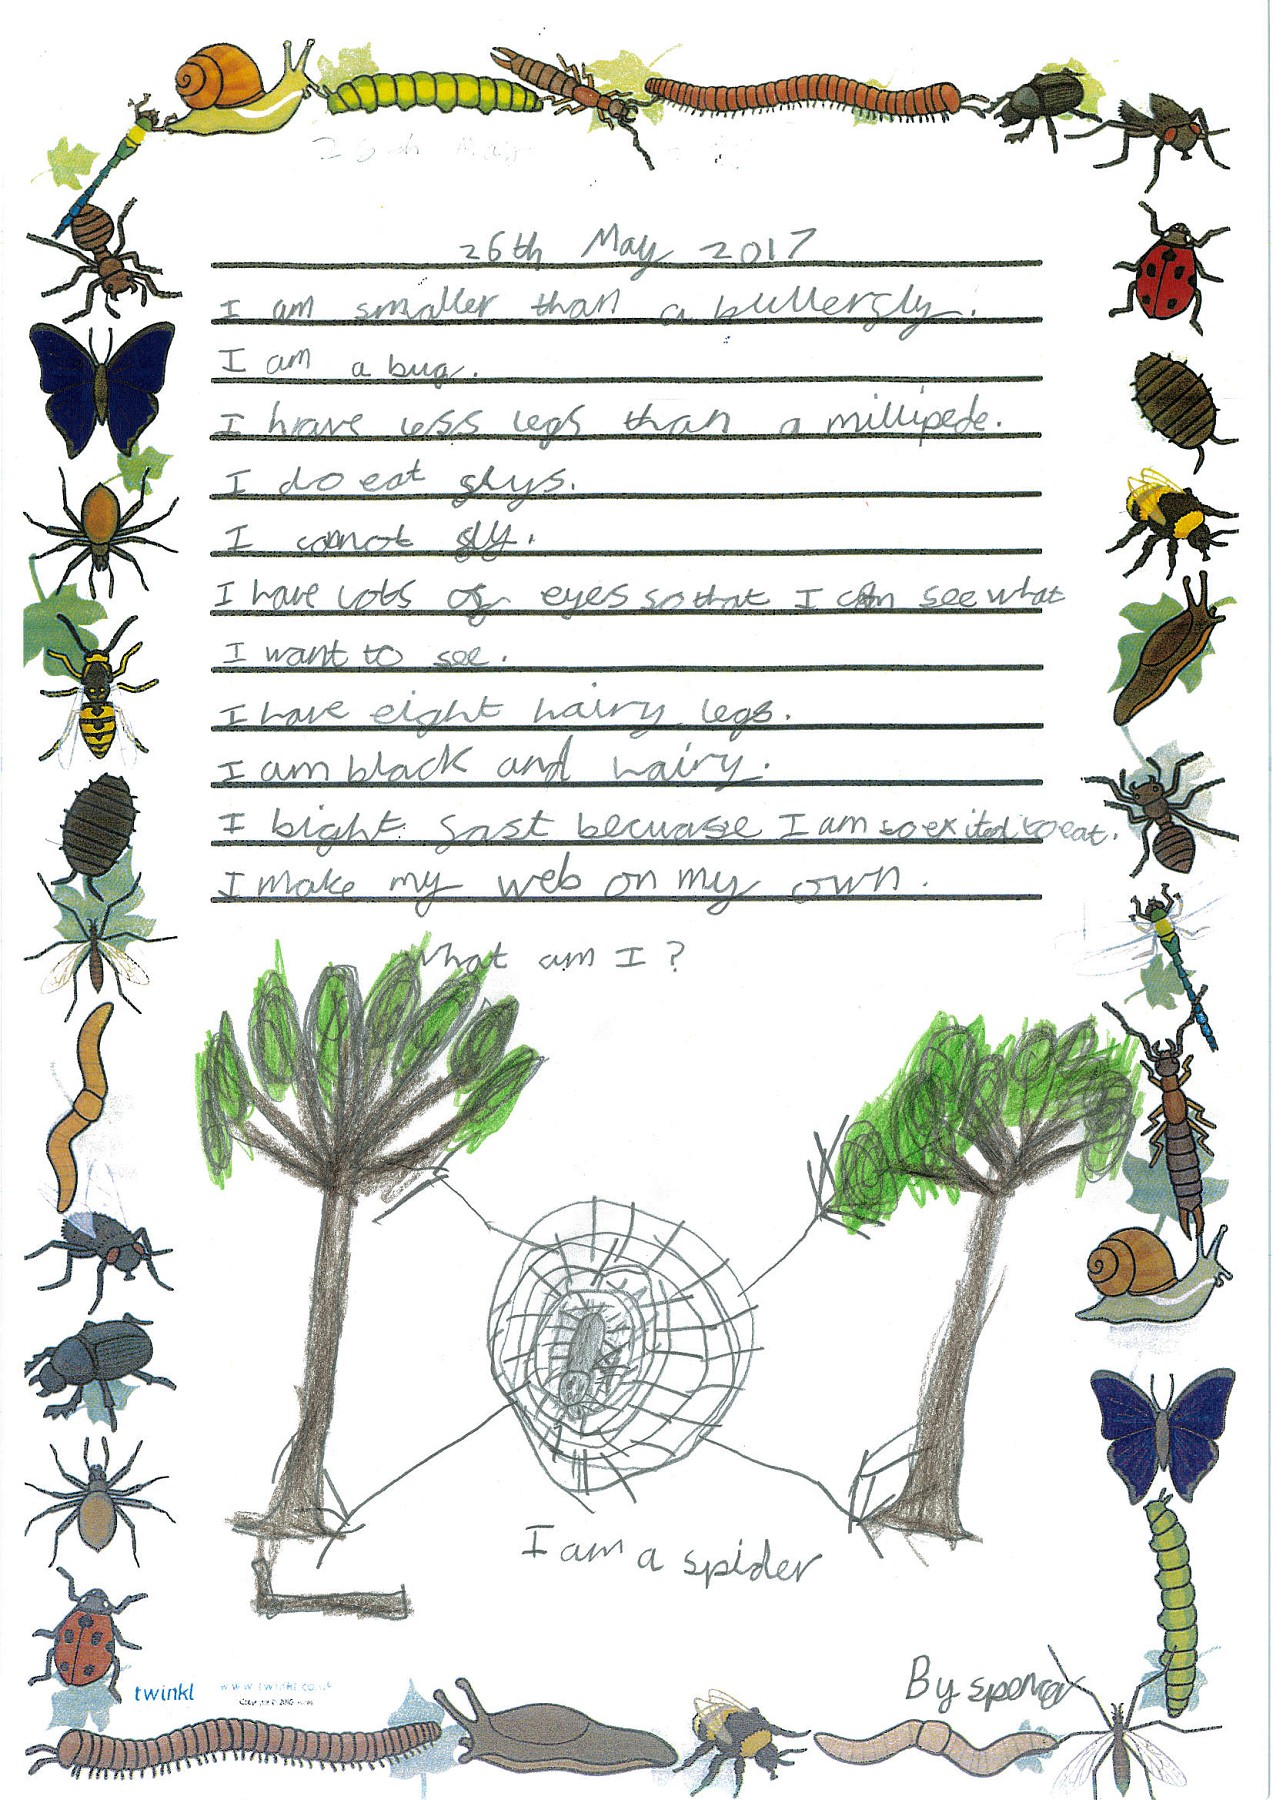 26th May
26th May 2017
I am smaller than a butterfly.
I am a bug.
I have less legs than a millipede.
I do eat flys.
I cannot fly.
I have lots of eyes so that I can see what
I want to see.
I have eight hairy legs.
I am black and hairy.
I bight fast becuase I am so exited to eat.
I make my web on my own.
What am I?
I am a spider
By
twinkl
www.twinkl.co.uk